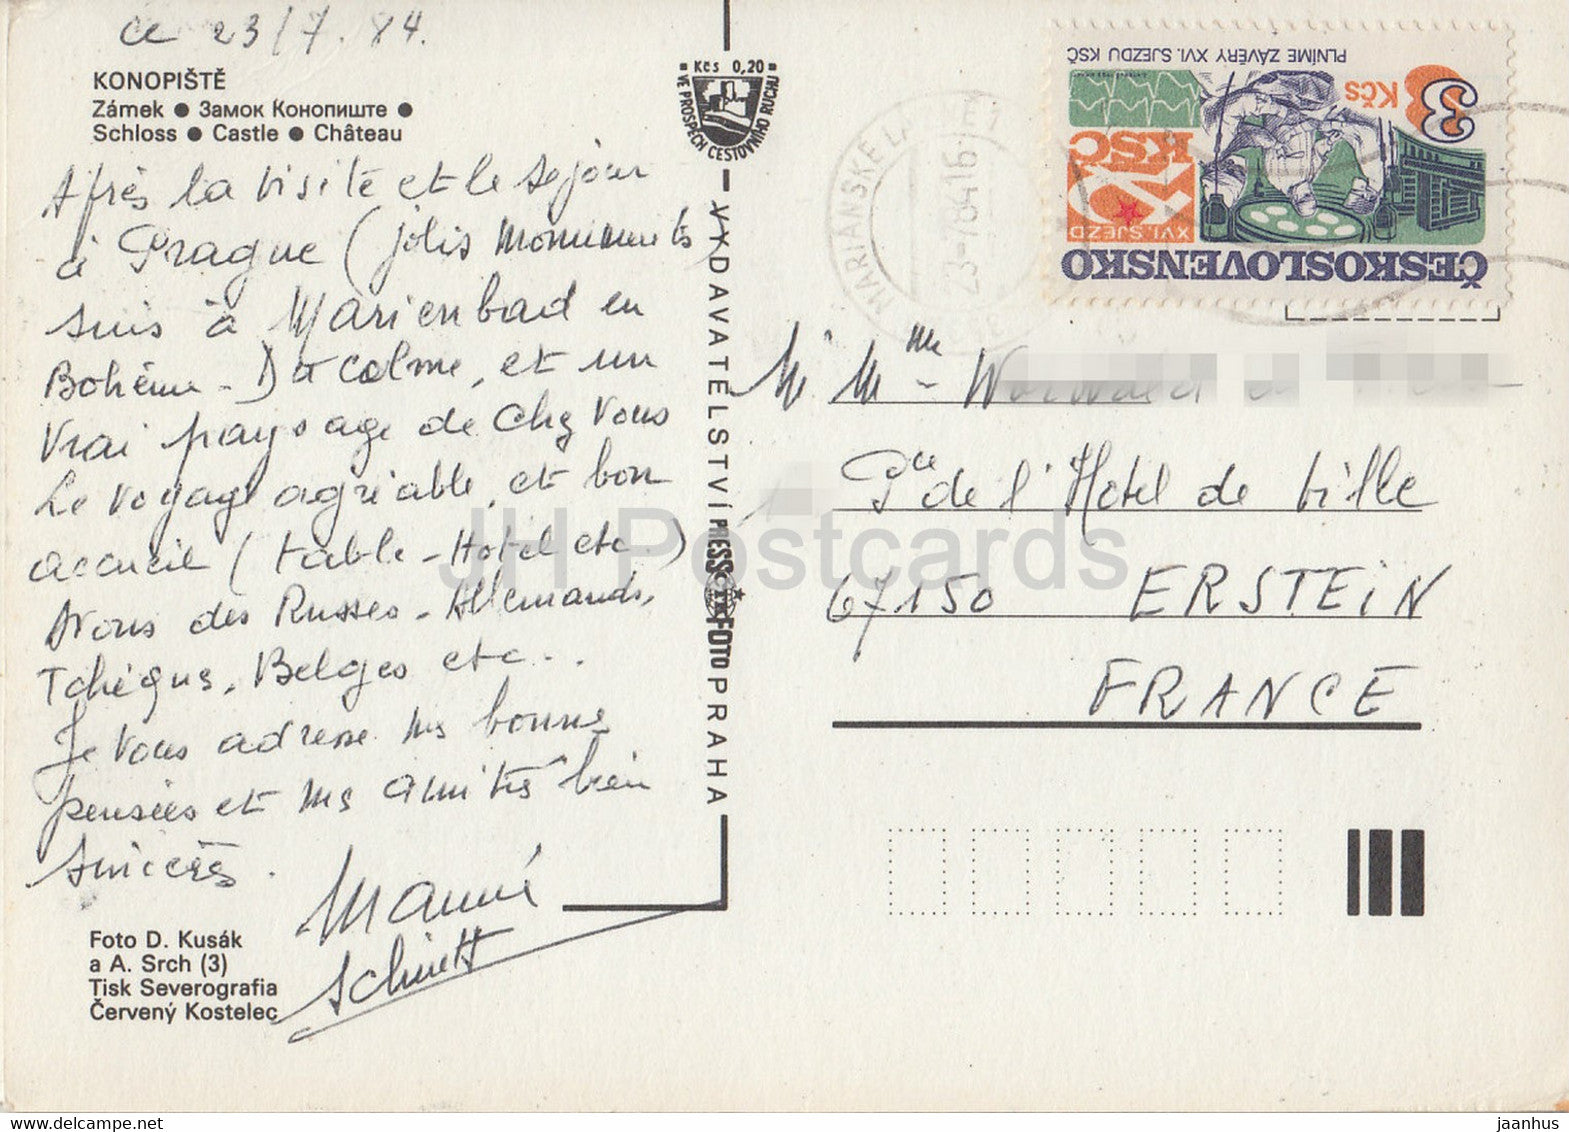 ce 23/7.84.
KONOPIŠTĚ
Zámek ● Замок Конопиште ●
Schloss ● Castle ● Château
Après la visite et le séjour
à Prague (jolis monuments
suis à Marienbad en
Bohême - Du calme, et un
vrai paysage de chez vous
Le voyage agréable, et bon
accueil (table - Hotel etc.)
Avons des Russes - Allemands,
Tchèques, Belges etc..
Je vous adresse mes bonnes
pensées et mes amitiés bien
sincères.
Schmitt
Foto D. Kusák
a A. Srch (3)
Tisk Severografia
Červený Kostelec
Kčs 0,20
VE PROSPĚCH CESTOVNÍHO RUCHU
VYDAVATELSTVÍ PRESSFOTO PRAHA
ČTK
MARIÁNSKÉ LÁZNĚ 1
23.-7.84-16
ČESKOSLOVENSKO
XVI. SJEZD
KSČ
3 Kčs
PLNÍME ZÁVĚRY XVI. SJEZDU KSČ
M Mme
de l'Hotel de Ville
67150 ERSTEIN
FRANCE
JH Postcards
www.delcampe.net
jaanhus